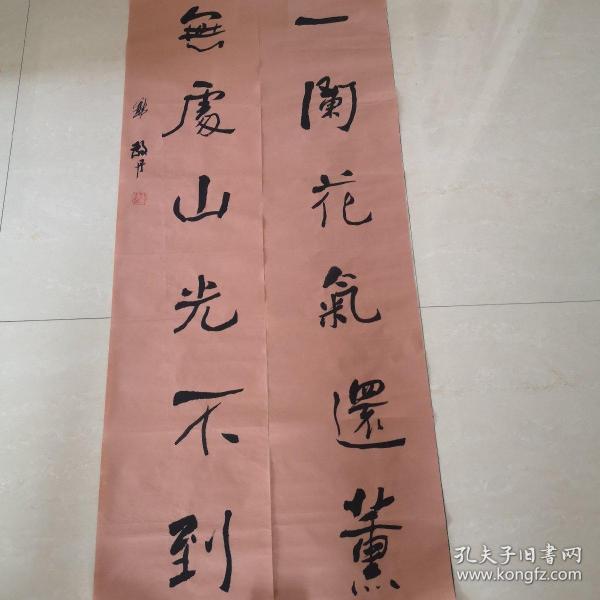 一阑花氣還薰
無處山光不到
孔夫子旧書网
www.kongfz.com